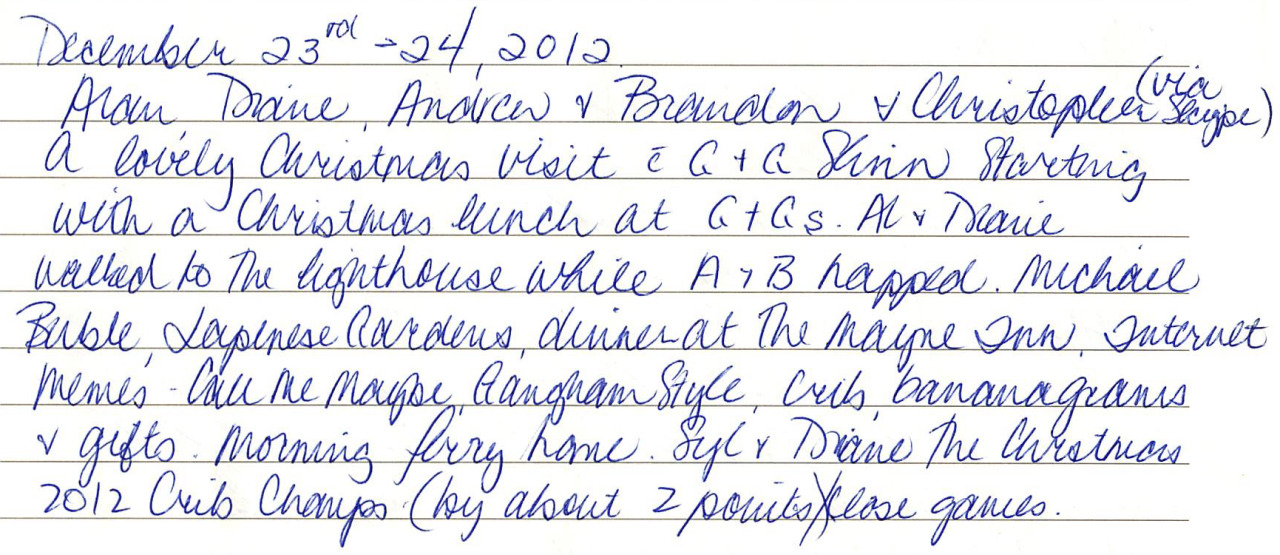 December 23rd - 24, 2012
Alan, Diane, Andrew & Brandon & Christopher (via Skype)
A lovely Christmas visit c̄ G + G Skinn Starting
with a Christmas lunch at G + Gs. Al & Diane
walked to the lighthouse while A & B napped. Michael
Buble, Japenese Gardens, dinner at The Mayne Inn, Internet
memes - Call Me Maybe, Gangham Style, Crib, bananagrams
& gifts. Morning ferry home. Syl & Diane the Christmas
2012 Crib Champs (by about 2 points) (close games.